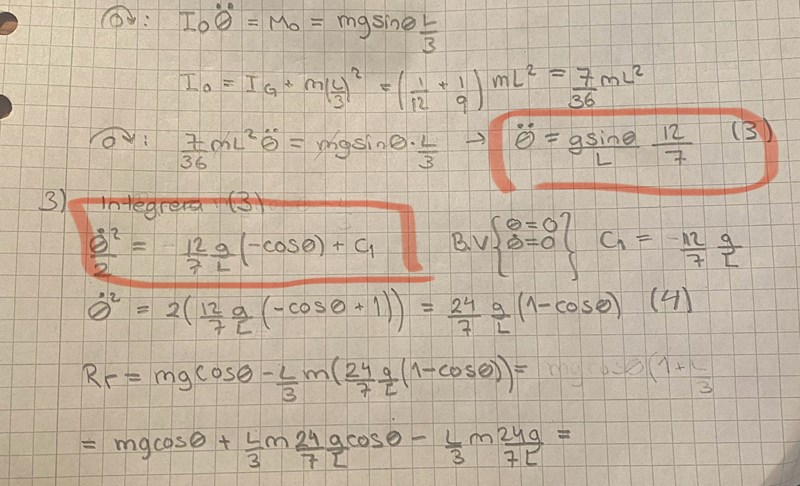 O: I₀Ö = M₀ = mgsinθ L/3
I₀ = I_G + m(L/3)² = (1/12 + 1/9) mL² = 7/36 mL²
O: 7/36 mL² Ö = mgsinθ · L/3 → Ö = gsinθ/L 12/7 (3)
3) Integrera (3)
Ö²/2 = 12/7 g/L (-cosθ) + C₁ B.V { θ=0 θ̇=0 } C₁ = -12/7 g/L
Ö² = 2(12/7 g/L (-cosθ + 1)) = 24/7 g/L (1-cosθ) (4)
Rr = mgcosθ - L/3 m(24/7 g/L (1-cosθ)) = mgcosθ(1+L/3
= mgcosθ + L/3 m 24/7 g/L cosθ - L/3 m 24g/7L =